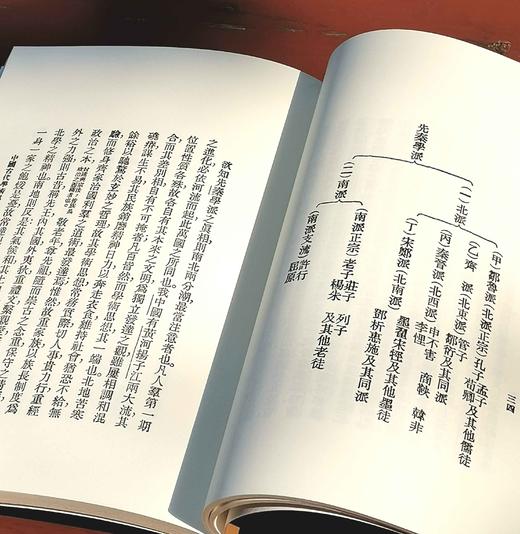 三四
先秦學派
(一)北派
(甲)鄒魯派(北派正宗)孔子孟子
荀卿及其他儒徒
(乙)齊 派(北東派)管子
鄒衍及其同派
(丙)秦晉派(北西派)申不害 商鞅 韓非
李悝
(丁)宋鄭派(北南派)墨翟宋牼及其他墨徒
鄧析惠施及其同派
(二)南派
南派正宗 老子莊子 列子
楊朱 及其他老徒
南派支流 許行
屈原
欲知先秦學派之眞相則南北兩分潮最當注意者也凡人羣第一期
之進化必依河流而起此萬國之所同也我中國有黃河揚子江兩大流其
位置性質各殊故各自有其本來之文明爲獨立發達之觀雖屢相調和混
合而其差別相自有不可掩者凡百皆然而學術思想其一端也北地苦寒
磽瘠謀生不易其民族銷磨精神日力以奔走衣食維持社會猶恐不給無
餘裕以馳騖於玄妙之哲理故其學術思想常務實際切人事貴力行重經
驗而修身齊家治國利羣之道術最發達焉惟然故重家族以族長制度爲
政治之本敬老年尊先祖隨而崇古之念重保守之情
外之力強則古昔稱先王內其國外夷狄重禮文繫親愛
北學之精神也南地則反是其氣候和其土
一身一家之飽煖是憂故常達
中國古代學術